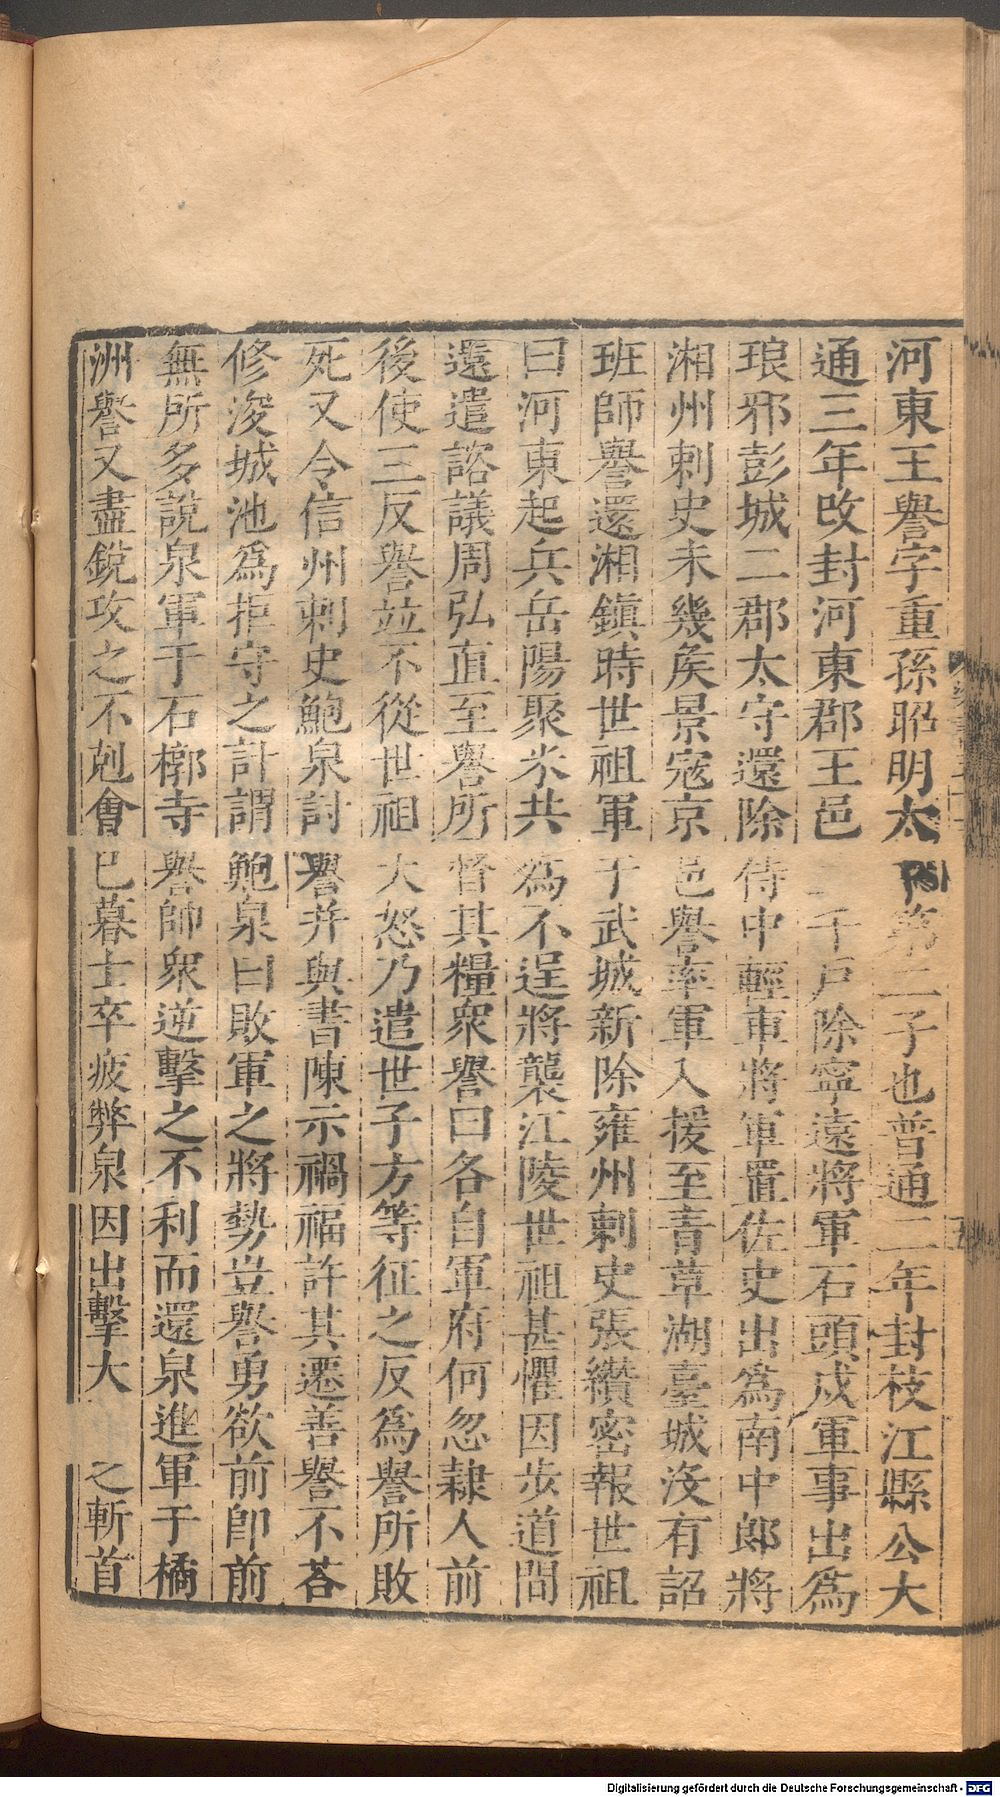 河東王譽字重孫昭明太子第二子也普通二年封枝江縣公大
通三年改封河東郡王邑二千戶除寧遠將軍石頭戍軍事出爲
琅邪彭城二郡太守還除侍中輕車將軍置佐史出爲南中郎將
湘州刺史未幾矦景寇京邑譽率軍入援至青草湖臺城沒有詔
班師譽還湘鎮時世祖軍于武城新除雍州刺史張纘密報世祖
曰河東起兵岳陽聚米共爲不逞將襲江陵世祖甚懼因步道間
還遣諮議周弘直至譽所督其糧衆譽曰各自軍府何忽隷人前
後使三反譽竝不從世祖大怒乃遣世子方等征之反爲譽所敗
死又令信州刺史鮑泉討譽并與書陳示禍福許其遷善譽不荅
修浚城池爲拒守之計謂鮑泉曰敗軍之將勢豈譽勇欲前卽前
無所多說泉軍于石槨寺譽帥衆逆擊之不利而還泉進軍于橘
洲譽又盡銳攻之不剋會已暮士卒疲弊泉因出擊大 之斬首
Digitalisierung gefördert durch die Deutsche Forschungsgemeinschaft - DFG